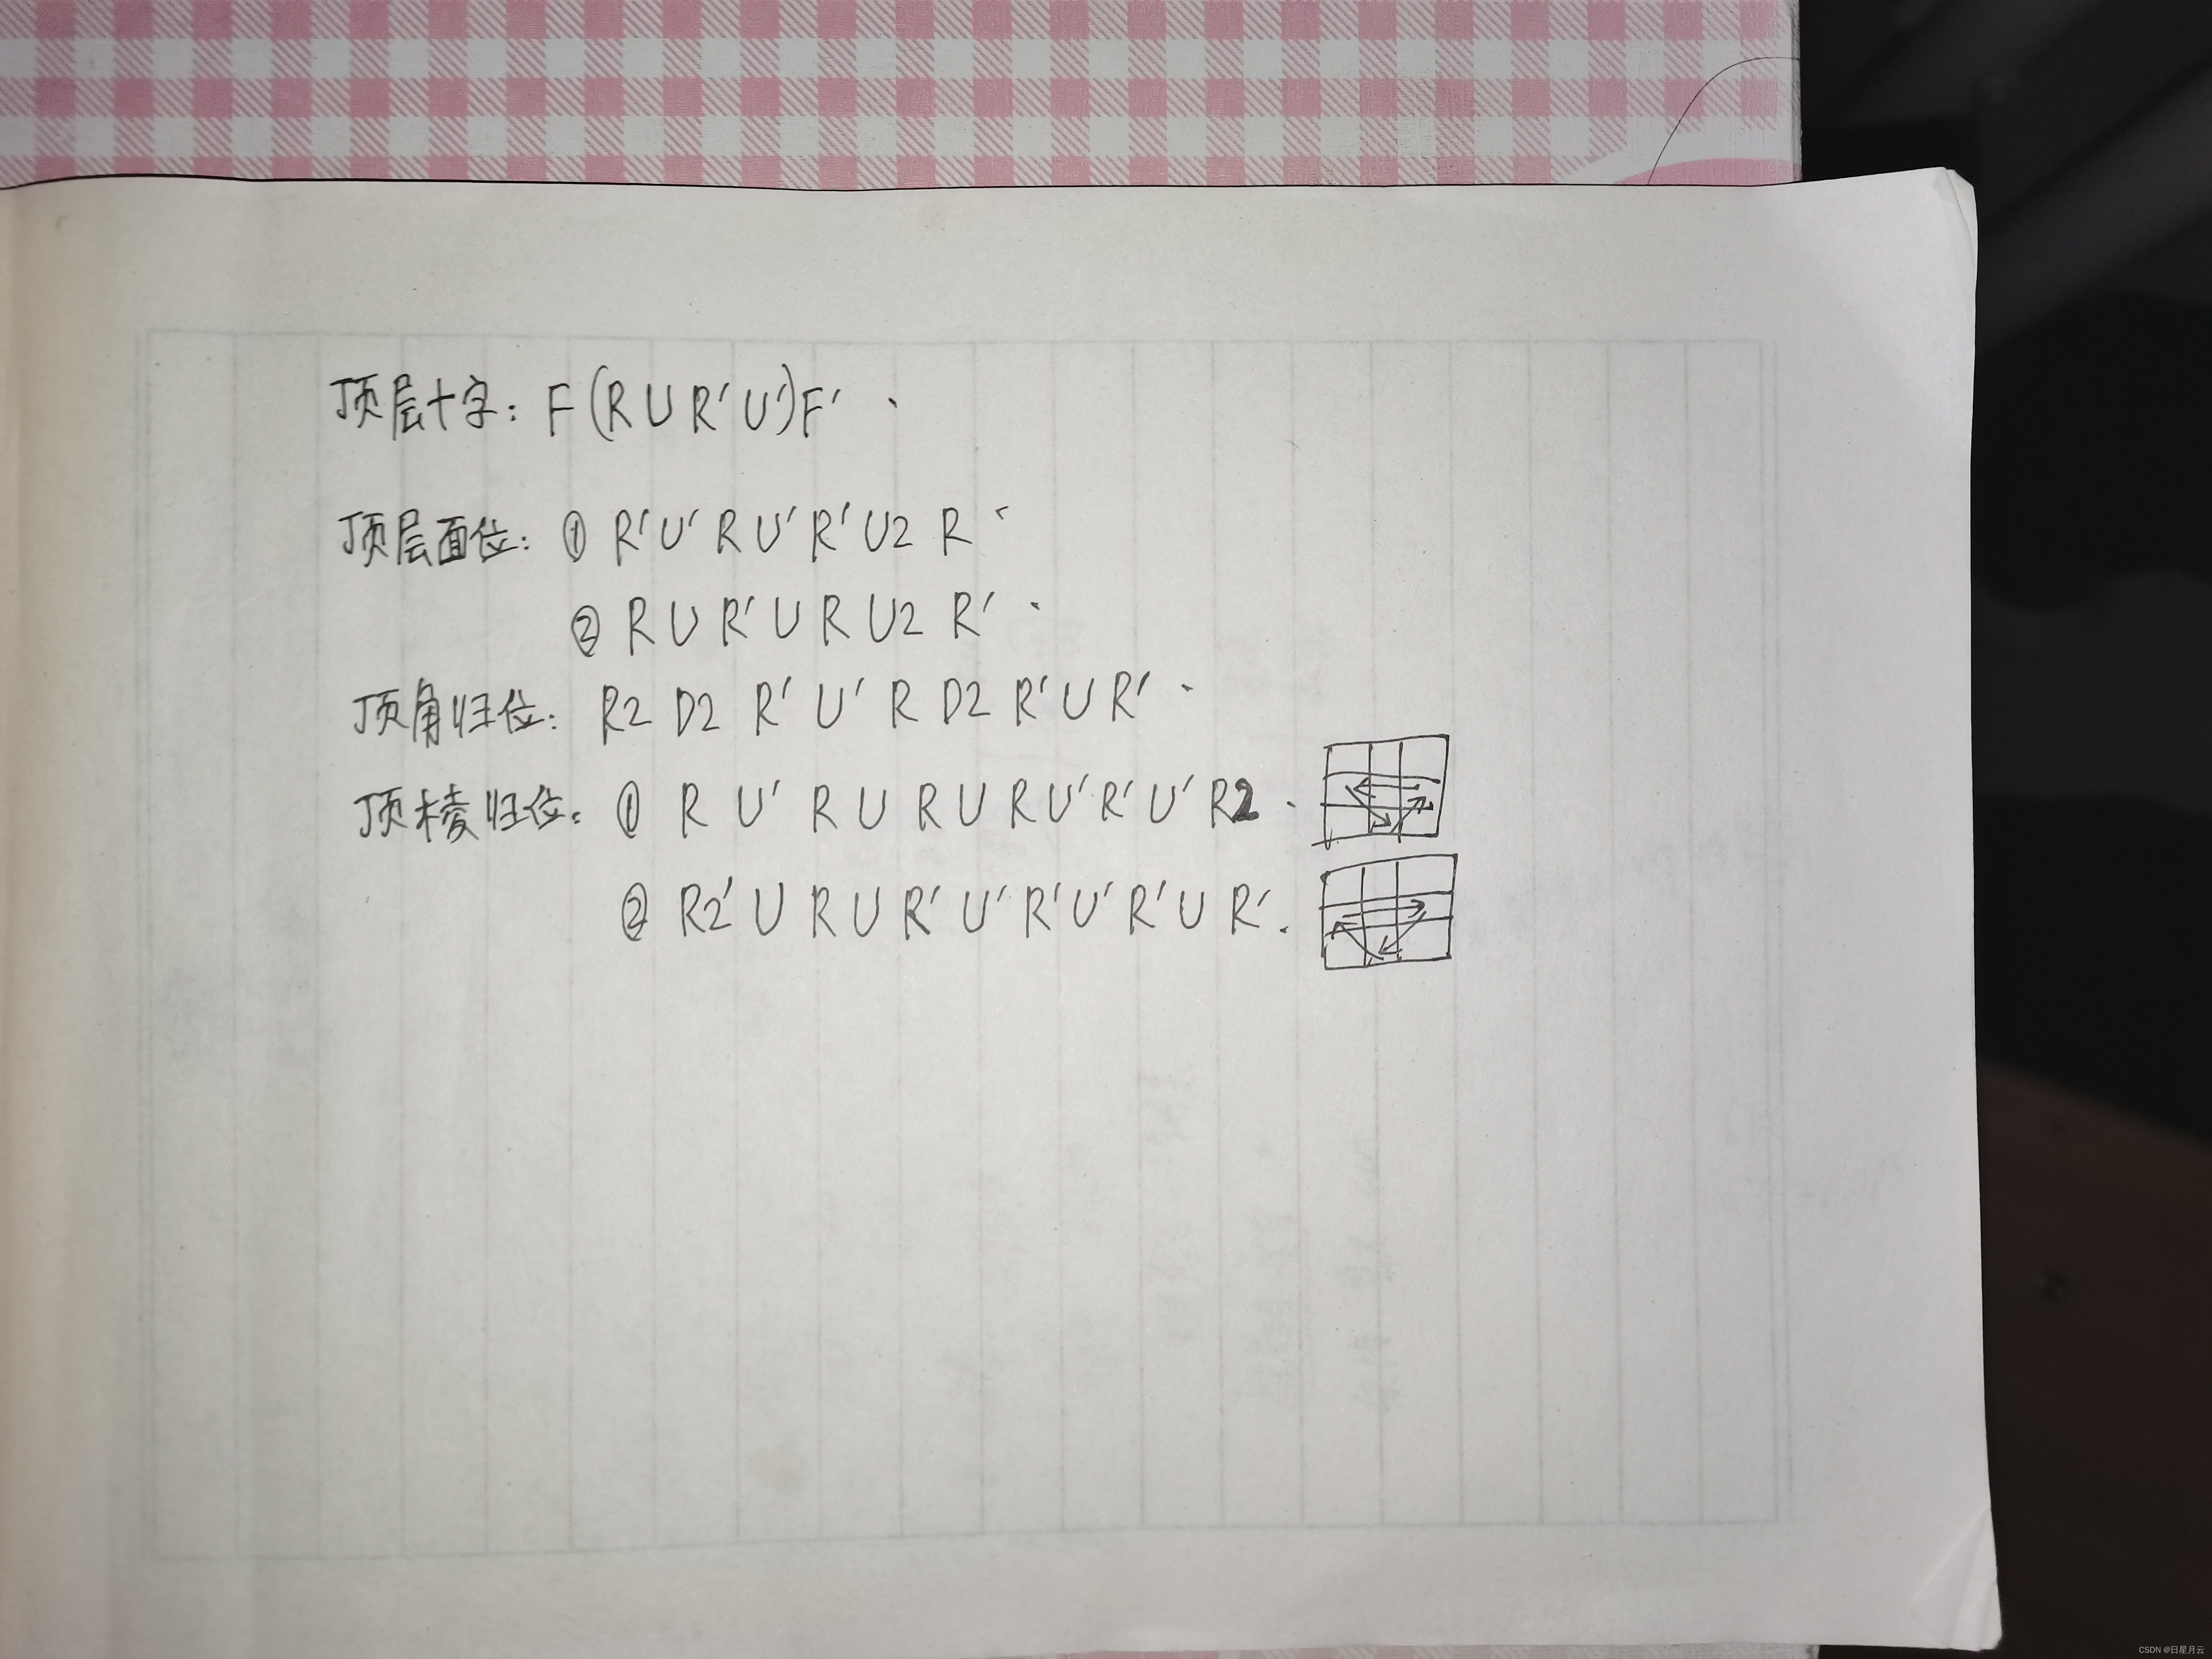 顶层十字: F (R U R' U') F'
顶层面位: ① R' U' R U' R' U2 R
② R U R' U R U2 R'
顶角归位: R2 D2 R' U' R D2 R' U R'
顶棱归位: ① R U' R U R U R U' R' U' R2
② R2' U R U R' U' R' U' R' U R'
CSDN @日星月云